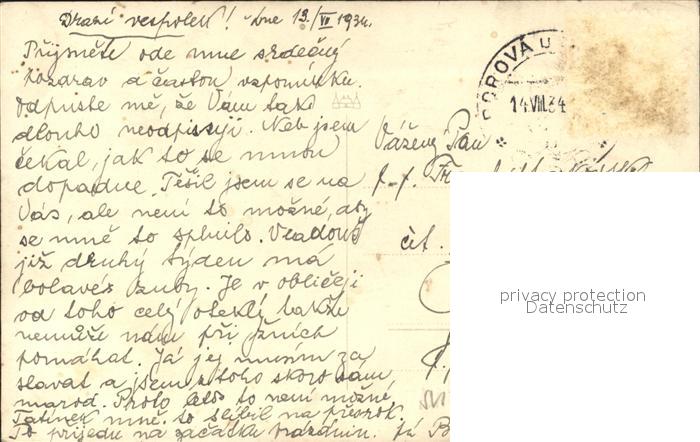 Drazí vespolek! dne 13/VII 1934.
Přijměte ode mne srdečný
pozdrav a častou vzpomínku.
Odpuste mě, že Vám tak
dlouho neodpisuji. Neb jsem
čekal, jak to se mnou
dopadne. Těšil jsem se na
Vás, ale není to možné, aby
se mně to splnilo. Vladouš
již druhý týden má
bolavé zuby. Je v obličeji
od toho celý oteklý takže
nemůže nám při žních
pomáhat. Já jej musím za
slavat a jsem z toho skoro sám
marod. Proto to není možné,
Tatínek mně to slíbil na přesrok.
To přijedu na začátku prázdnin.
Vážený Pan
čís.
14.VII.34
privacy protection
Datenschutz